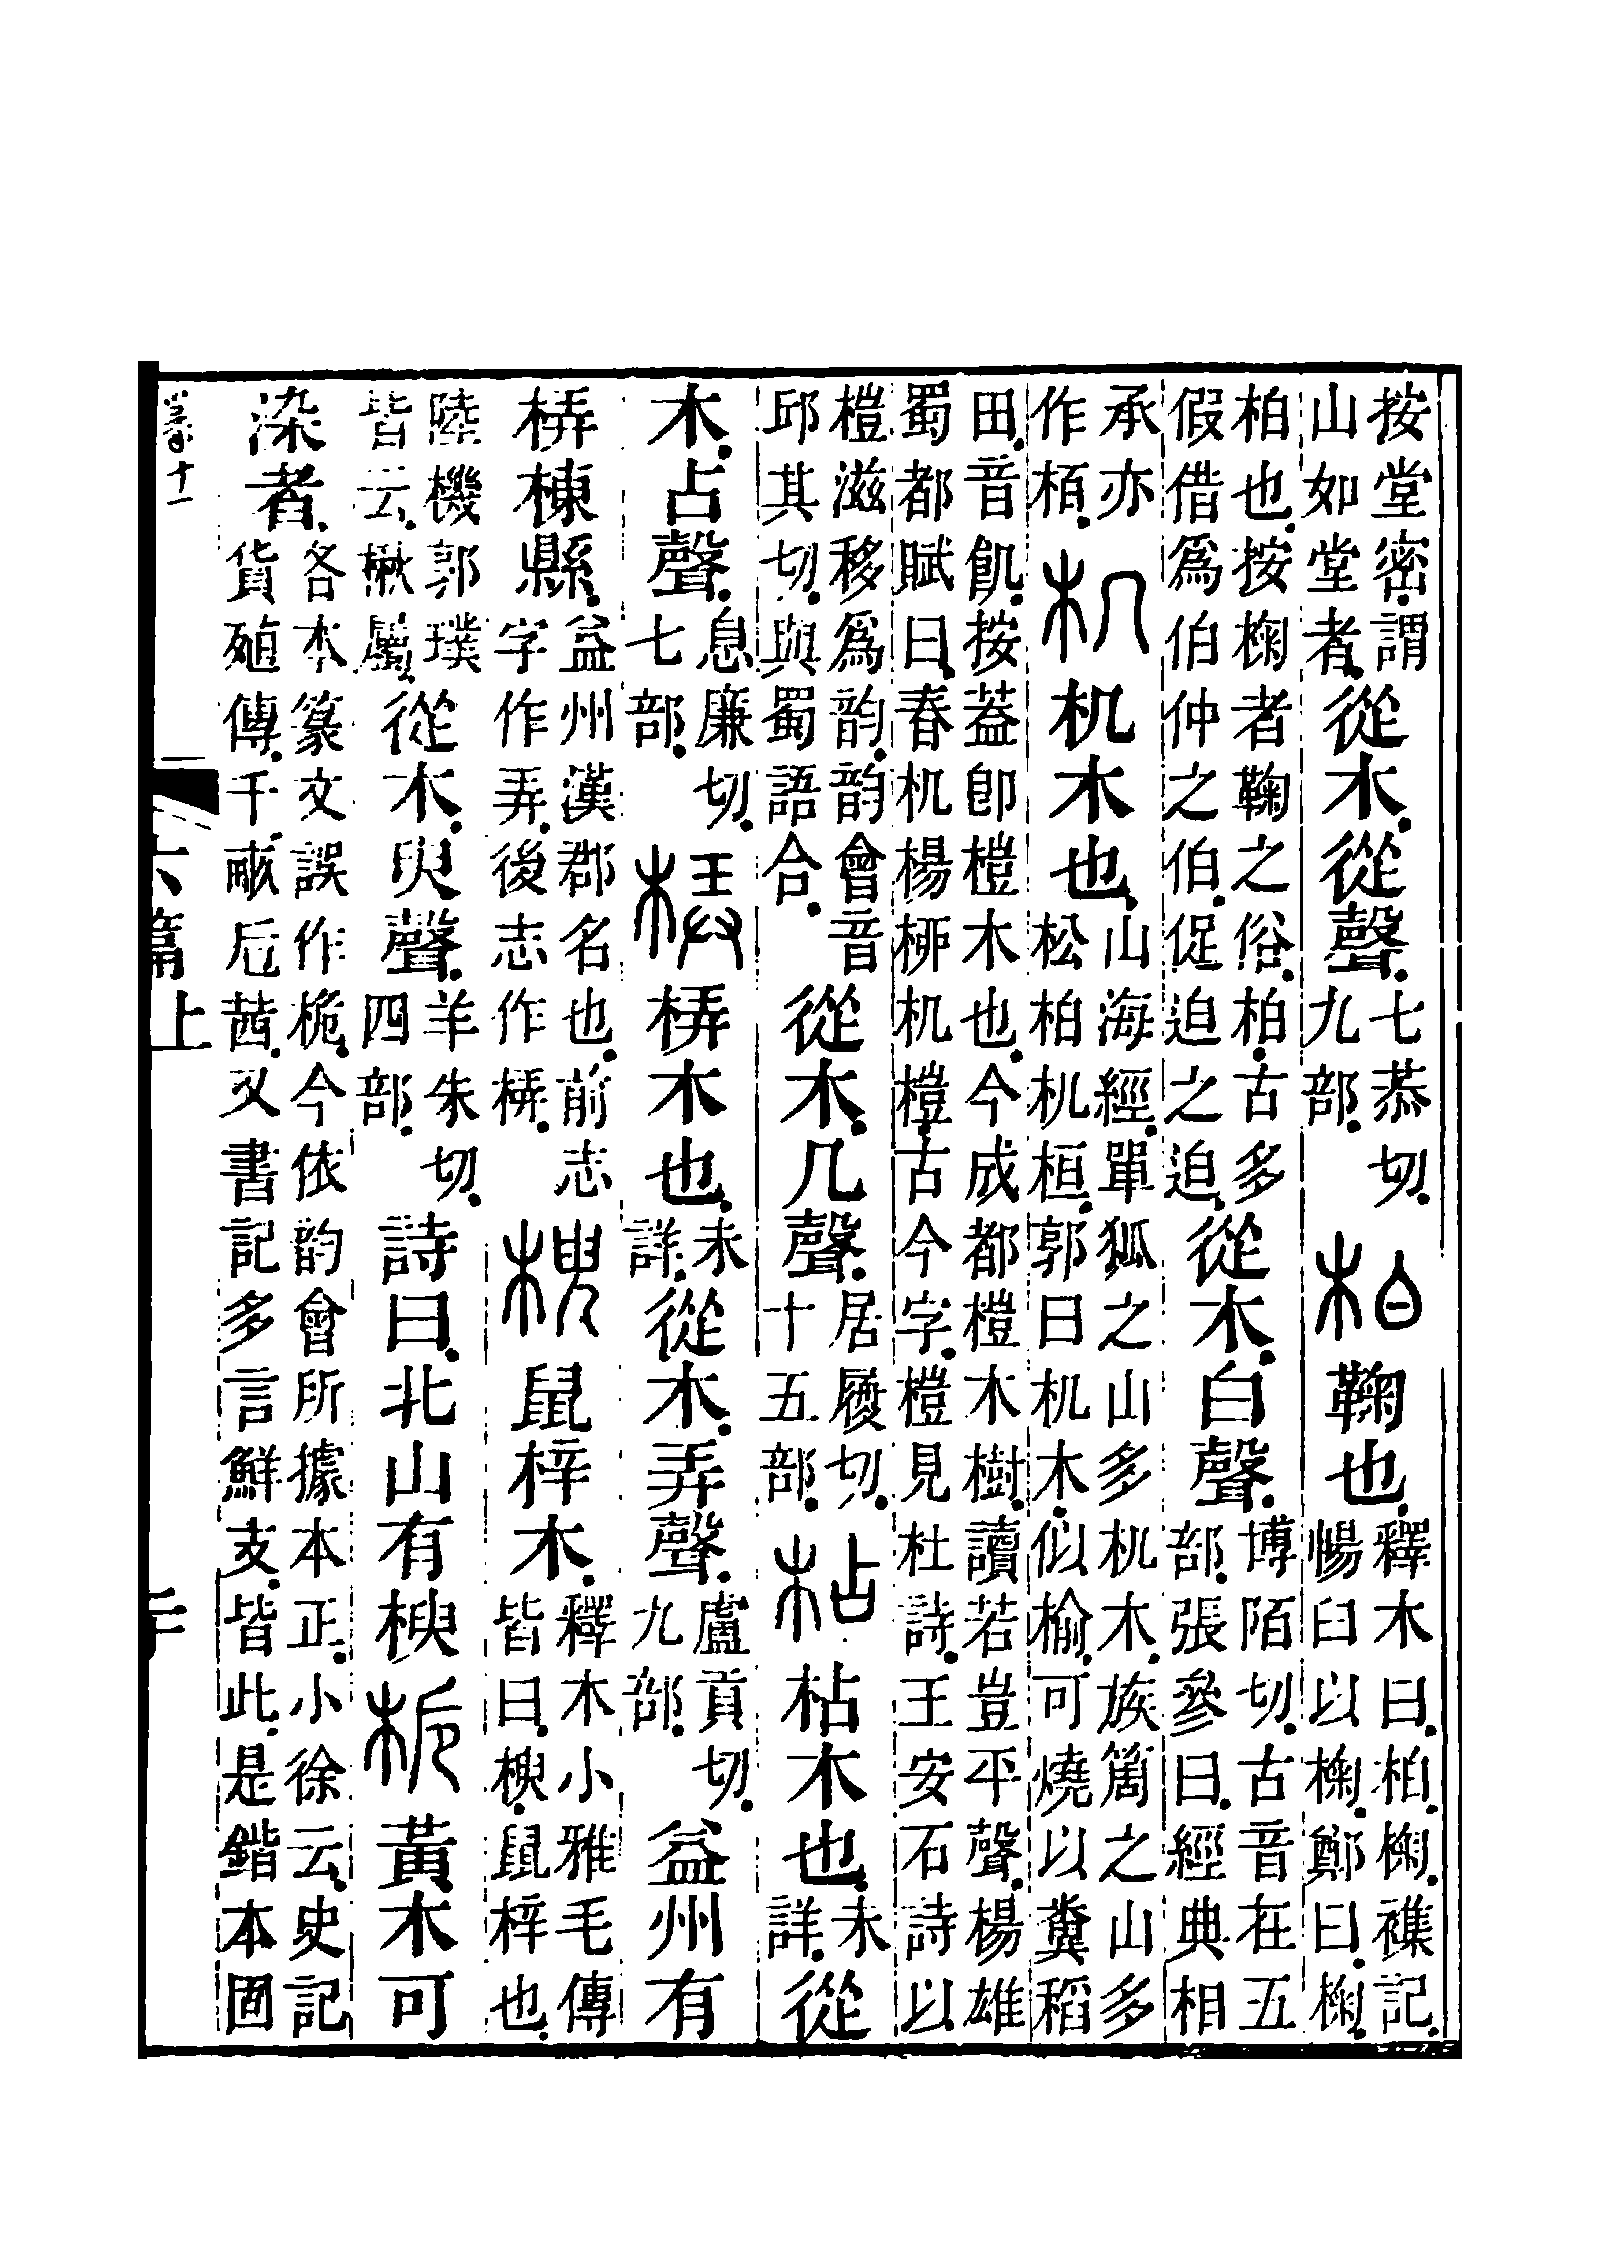 按堂密謂山如堂者從木從聲七恭切九部柏鞠也釋木曰柏椈襍記暢臼以椈鄭曰椈
柏也按椈者鞠之俗柏古多假借爲伯仲之伯促迫之迫從木白聲博陌切古音在五部張參曰經典相
承亦作栢机机木也山海經單狐之山多机木族之山多松柏机桓郭曰机木似楡可燒以糞稻
田音飢按葢卽榿木也今成都榿木樹讀若豈平聲楊雄蜀都賦曰春机楊柳机榿古今字榿見杜詩王安石詩以
榿滋移爲韵韵會音邱其切與蜀語合從木几聲居履切十五部枮枮木也未詳從
木占聲息廉切七部梇梇木也未詳從木弄聲盧貢切九部益州有
梇棟縣益州漢郡名也前志字作弄後志作梇楰鼠梓木釋木小雅毛傳皆曰楰鼠梓也
陸機郭璞皆云楸屬從木臾聲羊朱切四部詩曰北山有楰梔黃木可
染者各本篆文誤作桅今依韵會所據本正小徐云史記貨殖傳千畝卮茜又書記多言鮮支皆此是鍇本固
篆十一
六篇上